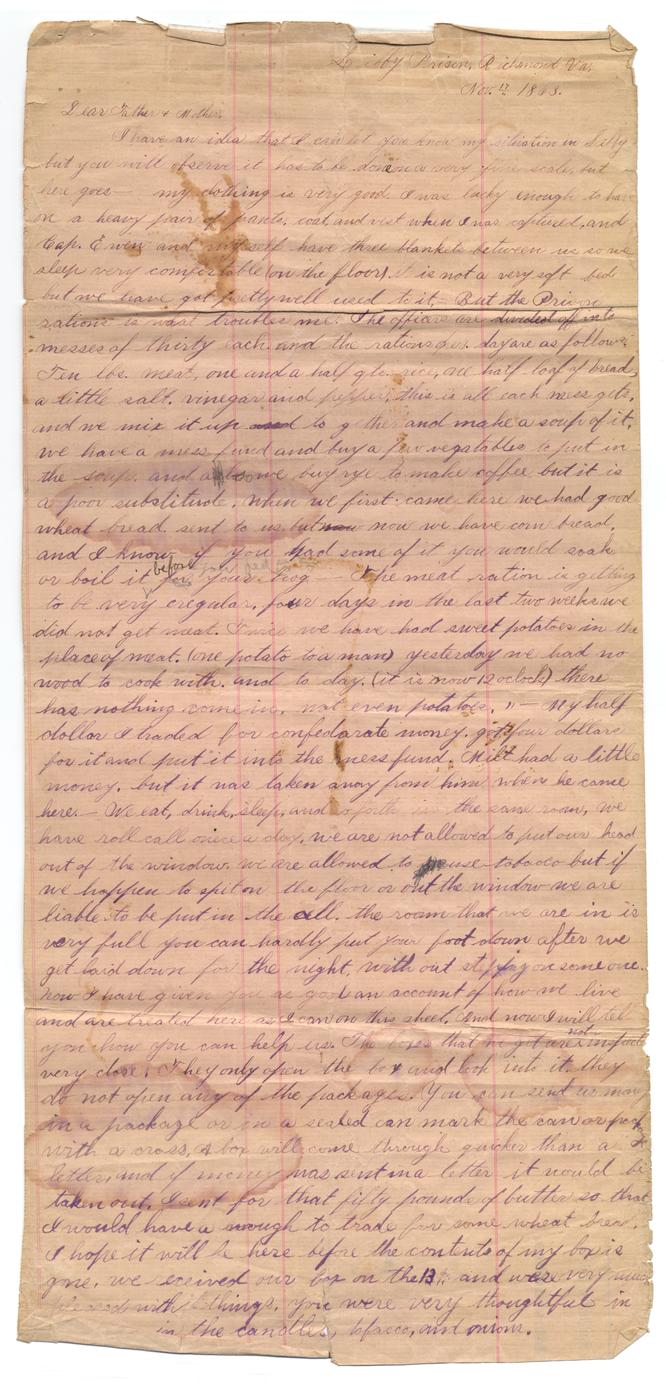 Libby Prison, Richmond Va.
Nov. 17 1863.
Dear Father & Mother,
I have an idea that I can let you know my situation in Libby
but you will observe it has to be done on a very fine scale, but
here goes— my clothing is very good. I was lucky enough to have
on a heavy pair of pants, coat, and vest when I was captured, and
Cap. Ewen and myself have three blankets between us so we
sleep very comfortable (on the floor) it is not a very soft bed
but we have got pretty well used to it,— But the Prison
rations is what troubles me. The officers are divided off into
messes of thirty each. and the rations per. day are as follows.
Ten lbs. meat, one and a half qts. rice, one half loaf of bread,
a little salt, vinegar and pepper, this is all each mess gets,
and we mix it up and to gether and make a soup of it,
we have a mess fund and buy a few vegatables to put in
the soup. and also we buy rye to make coffee but it is
a poor substitude. When we first came here we had good
wheat bread sent to us but now now we have corn bread,
and I know if you had some of it you would soak
or boil it before your hog — The meat ration is getting
to be very eregular, four days in the last two weeks we
did not get meat. Twice we have had sweet potatoes in the
place of meat. (one potato to a man) yesterday we had no
wood to cook with. and to day. (it is now 12 oclock) there
has nothing come in. not even potatoes. " — My half
dollar I traded for confedarate money. got four dollars
for it and put it into the mess fund. Milt had a little
money. but it was taken away from him when he came
here.— We eat, drink, sleep, and so forth in the same room, we
have roll call once a day. we are not allowed to put our head
out of the window. we are allowed to use tobacco but if
we happen to spit on the floor or out the window we are
liable to be put in the cell. the room that we are in is
very full you can hardly put your foot down after we
get laid down for the night, with out stepping on some one.
now I have given you as good an account of how we live
and are treated here as I can on this sheet. And now I will tel
you how you can help us. The boxes that we get are not
very close. They only open the box and look into it. they
do not open any of the packages. You can send us money
in a package or in a sealed can mark the can or
with a cross, A box will come through quicker than a
letter, and if money was sent in a letter it would be
taken out. I sent for that fifty pounds of butter so that
I would have a nough to trade for some wheat bread.
I hope it will be here before the contents of my box is
gone. we received our box on the 13th and were very much
pleased with things. you were very thoughtful in
in the candles, tobacco, and onions.